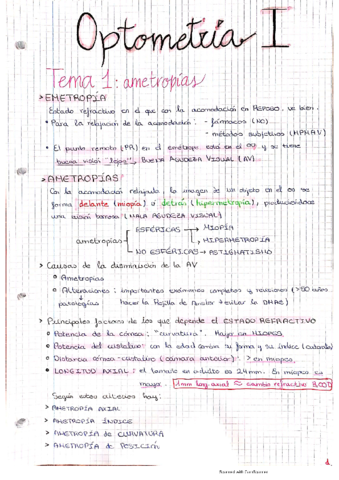 Optometría I
Tema 1: ametropías
> EMETROPÍA
Estado refractivo en el que con la acomodación en REPOSO, ve bien.
• Para la relajación de la acomodación: - fármacos (NO)
- métodos subjetivos (MPMAV)
• El punto remoto (PR) en el emétrope está en el ∞ y su tiene
buena visión "lejos", BUENA AGUDEZA VISUAL (AV)
> AMETROPÍAS
Con la acomodación relajada, la imagen de un objeto en el ∞ se
forma delante (miopía) o detrás (hipermetropía), produciéndose
una visión borrosa (MALA AGUDEZA VISUAL)
ametropías
ESFÉRICAS → MIOPÍA
→ HIPERMETROPÍA
NO ESFÉRICAS → ASTIGMATISMO
> Causas de la disminución de la AV
• Ametropías
• Alteraciones: importantes exámenes completos y revisiones (>50 años
patologías hacer la Rejilla de Amsler → evitar la DMAE)
> Principales factores de los que depende el ESTADO REFRACTIVO
• Potencia de la córnea: "curvatura". Mayor en MIOPES.
• Potencia del cristalino: con la edad cambia su forma y su índice (catarata)
• Distancia córnea-cristalino (cámara anterior): > en miopes.
• LONGITUD AXIAL: el tamaño en adulto es 24mm. En miopes es
mayor. 1mm long axial ≈ cambio refractivo 3,00D
Según estos criterios hay:
> AMETROPÍA AXIAL
> AMETROPÍA ÍNDICE
> AMETROPÍA de CURVATURA
> AMETROPÍA de POSICIÓN
1